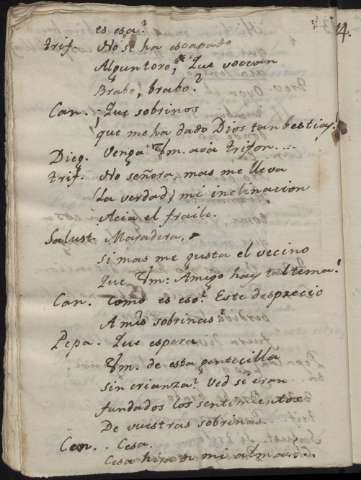 es esa?
Trif. No se ha escapado
Algun toro, que vocean
Brabo, brabo?
Can. Que sobrinos
que me ha dado Dios tan bestias.
Dieg. Venga Vm. acá Trifon....
Trif. No señora, mas me lleva
La verdad, mi inclinacion
Acia el fraile.
Salust. Maradera,
si mas me gusta el vecino
Que Vm: Amigo hay tal tema!
Can. Como es eso? Este desprecio
A mis sobrinas?
Pepa. Que espera
Vm. de esta gentecilla
sin crianza? Ved si eran
fundados los sentimientos
De vuestras sobrinas.
Can. Cesa.
Cesa hija de mi alma...
14.